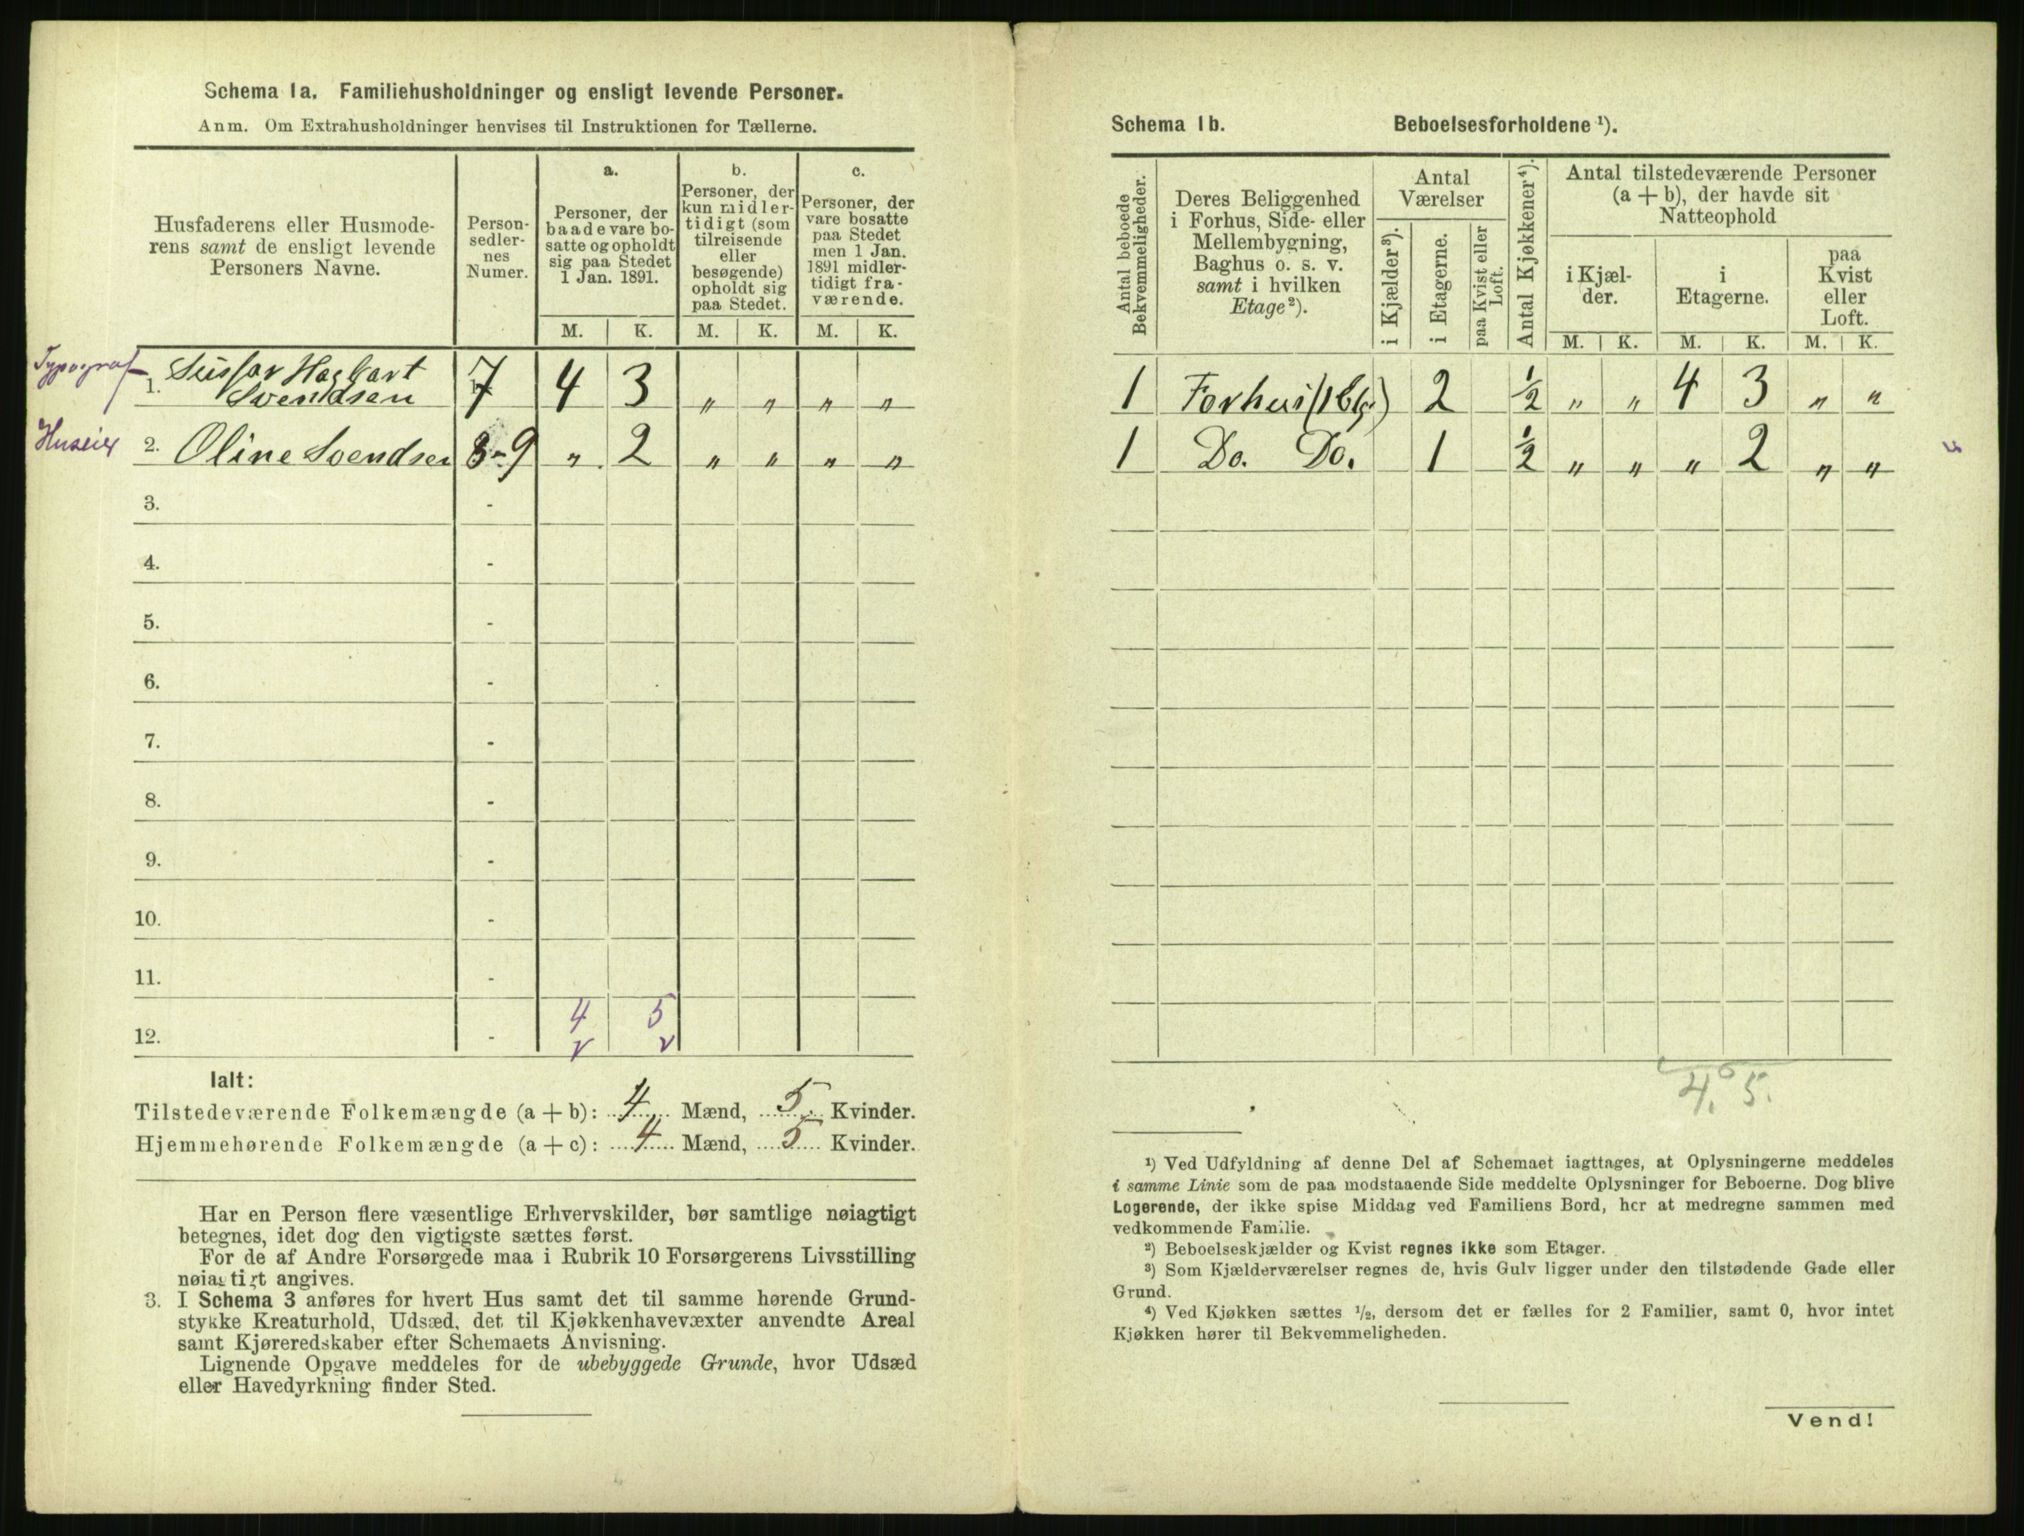 Schema 1a. Familiehusholdninger og ensligt levende Personer.
Anm. Om Extrahusholdninger henvises til Instruktionen for Tællerne.
Husfaderens eller Husmode-
rens samt de ensligt levende
Personers Navne.
Person-
sedler-
nes
Numer.
a.
Personer, der
baade vare bo-
satte og opholdt
sig paa Stedet
1 Jan. 1891.
b.
Personer, der
kun midler-
tidigt (som
tilreisende
eller
besøgende)
opholdt sig
paa Stedet.
c.
Personer, der
vare bosatte
paa Stedet
men 1 Jan.
1891 midler-
tidigt fra-
værende.
M. K. M. K. M. K.
Typograf
1. Hagbart
Svendsen 7 4 3 " " " "
Huseier 2. Oline Svendsen 8-9 " 2 " " " "
3. -
4. -
5. -
6. -
7. -
8. -
9. -
10. -
11. -
4 5
12. - v v
Ialt:
Tilstedeværende Folkemængde (a + b): 4 Mænd, 5 Kvinder.
Hjemmehørende Folkemængde (a + c): 4 Mænd, 5 Kvinder.
Har en Person flere væsentlige Erhvervskilder, bør samtlige nøiagtigt
betegnes, idet dog den vigtigste sættes først.
For de af Andre Forsørgede maa i Rubrik 10 Forsørgerens Livsstilling
nøiagtigt angives.
3. I Schema 3 anføres for hvert Hus samt det til samme hørende Grund-
stykke Kreaturhold, Udsæd, det til Kjøkkenhavevæxter anvendte Areal
samt Kjøreredskaber efter Schemaets Anvisning.
Lignende Opgave meddeles for de ubebyggede Grunde, hvor Udsæd
eller Havedyrkning finder Sted.
Schema 1b. Beboelsesforholdene ¹).
Antal beboede
Bekvemmeligheder.
Deres Beliggenhed
i Forhus, Side- eller
Mellembygning,
Baghus o. s. v.
samt i hvilken
Etage²).
Antal
Værelser
i Kjælder³).
i Etagerne.
paa Kvist eller
Loft.
Antal Kjøkkener⁴).
Antal tilstedeværende Personer
(a + b), der havde sit
Natteophold
i Kjæl-
der.
i
Etagerne.
paa
Kvist
eller
Loft.
M. K. M. K. M. K.
1 2 ½ " " 4 3 " "
1 Do. Do. 1 ½ " " " 2 " "
4. 5.
¹) Ved Udfyldning af denne Del af Schemaet iagttages, at Oplysningerne meddeles
i samme Linie som de paa modstaaende Side meddelte Oplysninger for Beboerne. Dog blive
Logerende, der ikke spise Middag ved Familiens Bord, her at medregne sammen med
vedkommende Familie.
²) Beboelseskjælder og Kvist regnes ikke som Etager.
³) Som Kjælderværelser regnes de, hvis Gulv ligger under den tilstødende Gade eller
Grund.
⁴) Ved Kjøkken sættes ½, dersom det er fælles for 2 Familier, samt 0, hvor intet
Kjøkken hører til Bekvemmeligheden.
Vend!